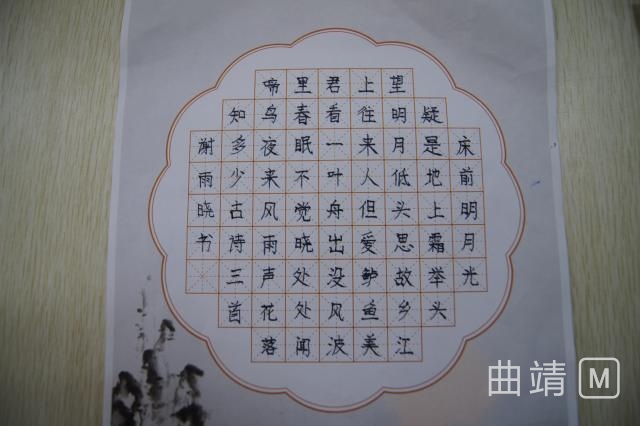 床前明月光
疑是地上霜举头
望明月低头思故乡江
上往来人但爱鲈鱼美
君看一叶舟出没风波
里春眠不觉晓处处闻
啼鸟夜来风雨声花落
知多少古诗三首
谢雨晓书
曲靖M